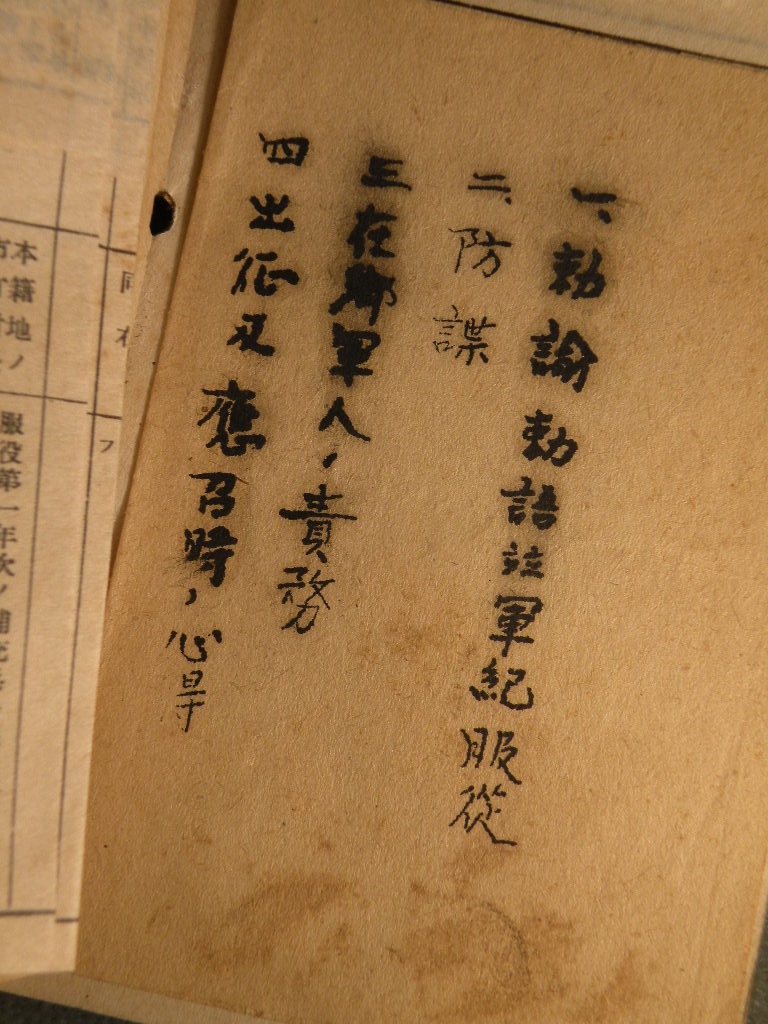 一、勅諭勅語竝軍紀服從
二、防諜
三在鄕軍人ノ責務
四出征及應召時ノ心得
本籍地ノ
服役第一年次ノ補充兵
フ